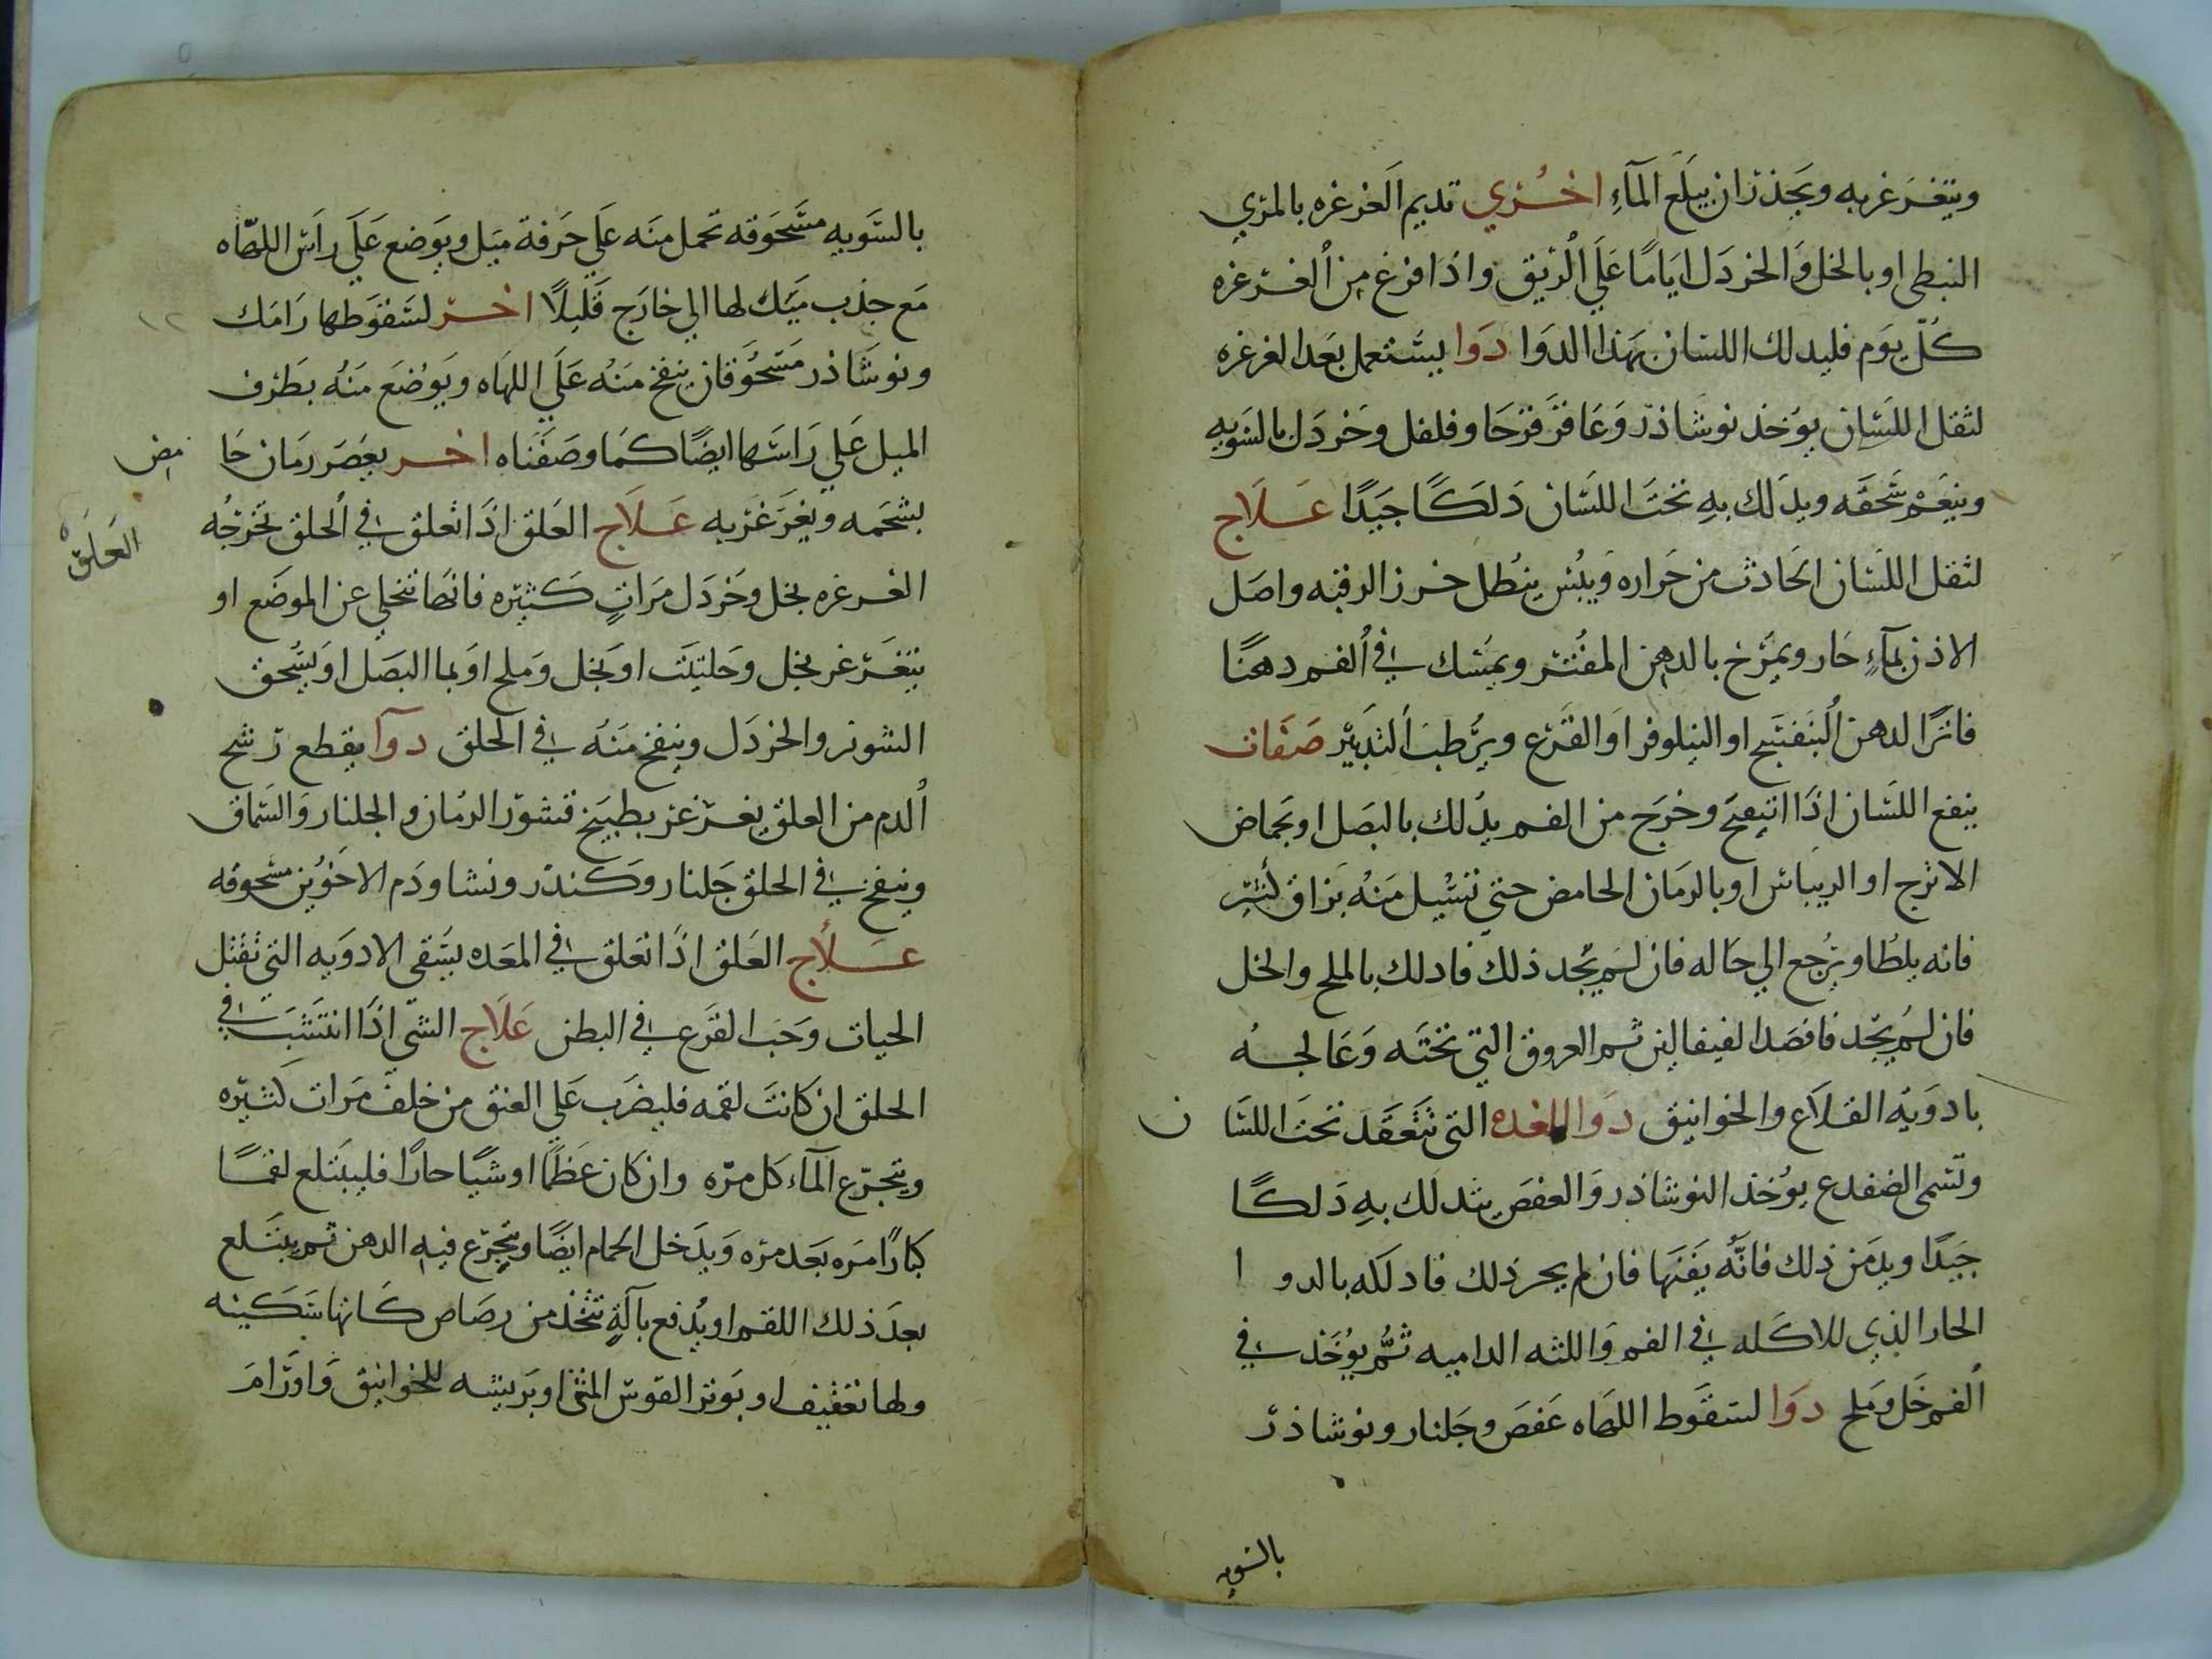 ويتغرغر به ويحذر ان يبلع المآءِ اخري تديم الغرغره بالمري
النبطى او بالخل والخردل اياما علي الريق واذا افرغ من الغرغره
كل يوم فليدلك اللسان بهذا الدوا دوا يستعمل بعد الغرغره
لثقل اللسان يوخذ نوشاذر وعاقرقرحا وفلفل وخردل بالسويه
وينعم سحقه ويدلك به تحت اللسان دلكا جيدا علاج
لثقل اللسان الحادث من حراره ويبس ينطل خرز الرقبه واصل
الاذن بمآءٍ حار ويمرخ بالدهن المفتر ويمسك في الفم دهنا
فاترا لدهن البنفسج او النيلوفر او القرع ويرطب التدبير صفات
ينفع اللسان اذا اتبعج وخرج من الفم يدلك بالبصل او بحماض
الاترج او الريباس او بالرمان الحامض حتي تسيل منه بزاق كثير
فانه يلطا ويرجع الي حاله فان لم يجد ذلك فادلك بالملح والخل
فان لم يجد فافصد القيفالين ثم العروق التي تحته وعالجه
بادويه القلاع والخوانيق دوا للغده التي تتعقد تحت اللسان
وتسمى الضفدع يوخذ النوشاذر والعفص يدلك به دلكا
جيدا ويدمن ذلك فانه يفنها فان لم يجر ذلك فادلكه بالدوا
الحار الذي للاكله في الفم واللثه الداميه ثم يوخذ في
الفم خل وملح دوا لسقوط اللهاه عفص وجلنار ونوشاذر
بالسويه
بالسويه مسحوقه تحمل منه علي حرفة ميل ويوضع علي راس اللهاه
مع جذب ميلك لها الي خارج قليلا اخر لسقوطها رامك
ونوشاذر مسحوقان ينفخ منه علي اللهاه ويوضع منه بطرف
الميل علي راسها ايضا كما وصفناه اخر يعصر رمان حامض
بشحمه ويغرغر به علاج العلق اذا تعلق في الحلق تخرجه
العلق
الغرغره بخل وخردل مرات كثيره فانها تتخلي عن الموضع او
يتغرغر بخل وحلتيت او بخل وملح او بما البصل او يسحق
الشونز والخردل وينفخ منه في الحلق دوآ يقطع رشح
الدم من العلق يغرغر بطبيخ قشور الرمان والجلنار والسماق
وينفخ في الحلق جلنار وكندر ونشا ودم الاخوين مسحوقه
علاج العلق اذا تعلق في المعده يستقي الادويه التي تقتل
الحيات وحب القرع في البطن علاج الشي اذا انتشب في
الحلق ان كانت لقمه فليضرب علي العنق من خلف مرات كثيره
ويتجرع المآء كل مره وان كان عظما او شيا حارا فليبتلع لقما
كبارا مره بعد مره ويدخل الحمام ايضا ويتجرع فيه الدهن ثم يبتلع
بعد ذلك اللقم او يدفع بآلةٍ تتخذ من رصاص كانها سكينه
ولها تعقيف او بوتر القوس المثني او بريشه للخوانيق واورام